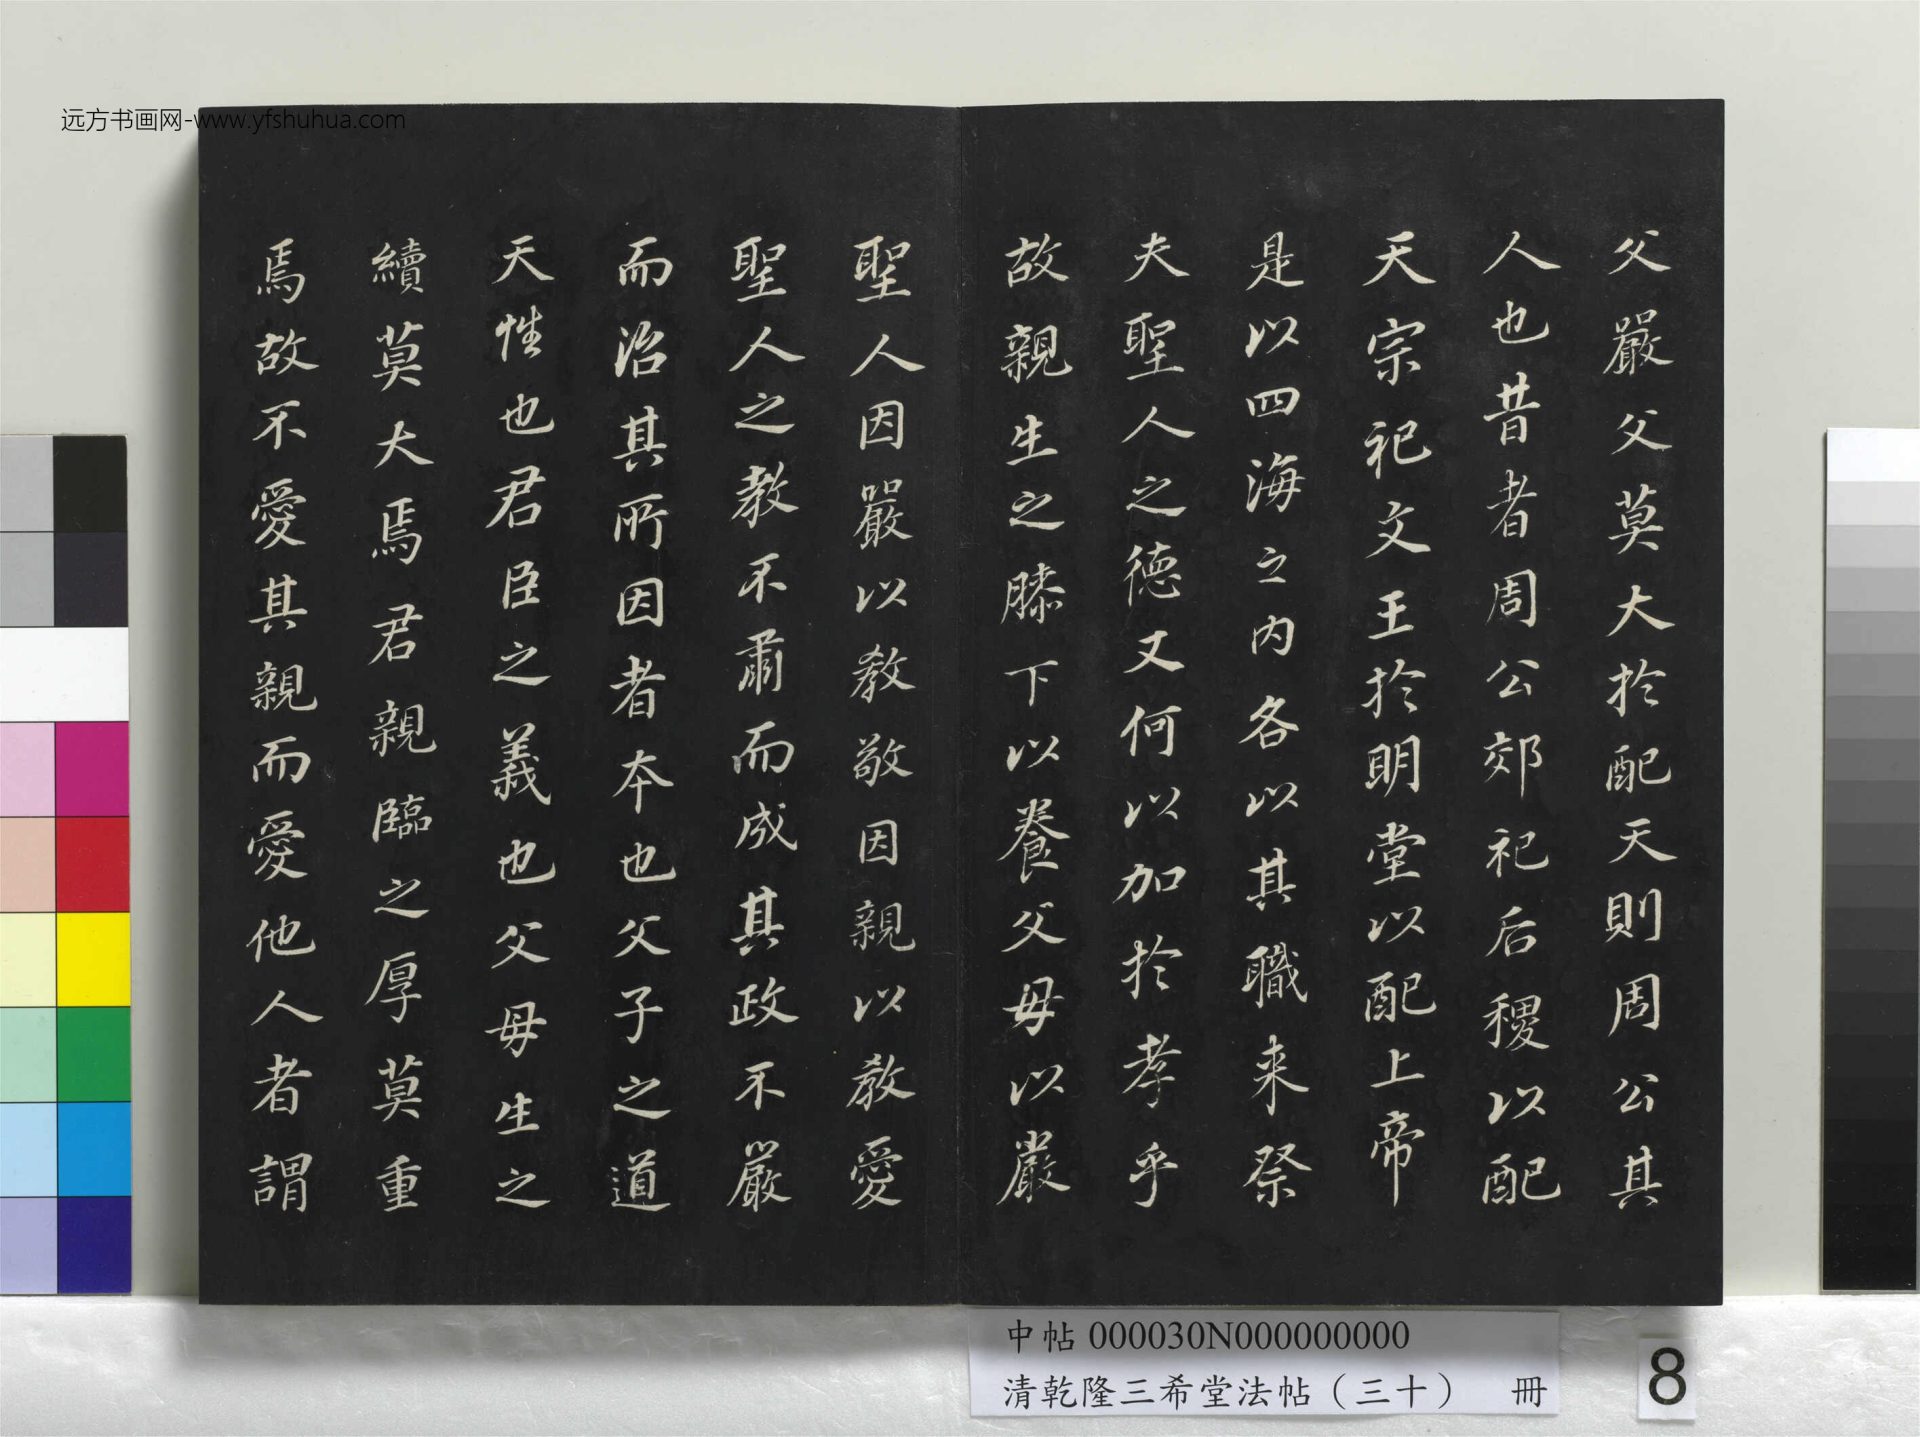 远方书画网-www.yfshuhua.com
父嚴父莫大於配天則周公其
人也昔者周公郊祀后稷以配
天宗祀文王於明堂以配上帝
是以四海之内各以其職来祭
夫聖人之德又何以加於孝乎
故親生之膝下以養父母以嚴
聖人因嚴以教敬因親以教愛
聖人之教不肅而成其政不嚴
而治其所因者本也父子之道
天性也君臣之義也父母生之
續莫大焉君親臨之厚莫重
焉故不愛其親而愛他人者謂
中帖 000030N000000000
清乾隆三希堂法帖（三十） 冊
8